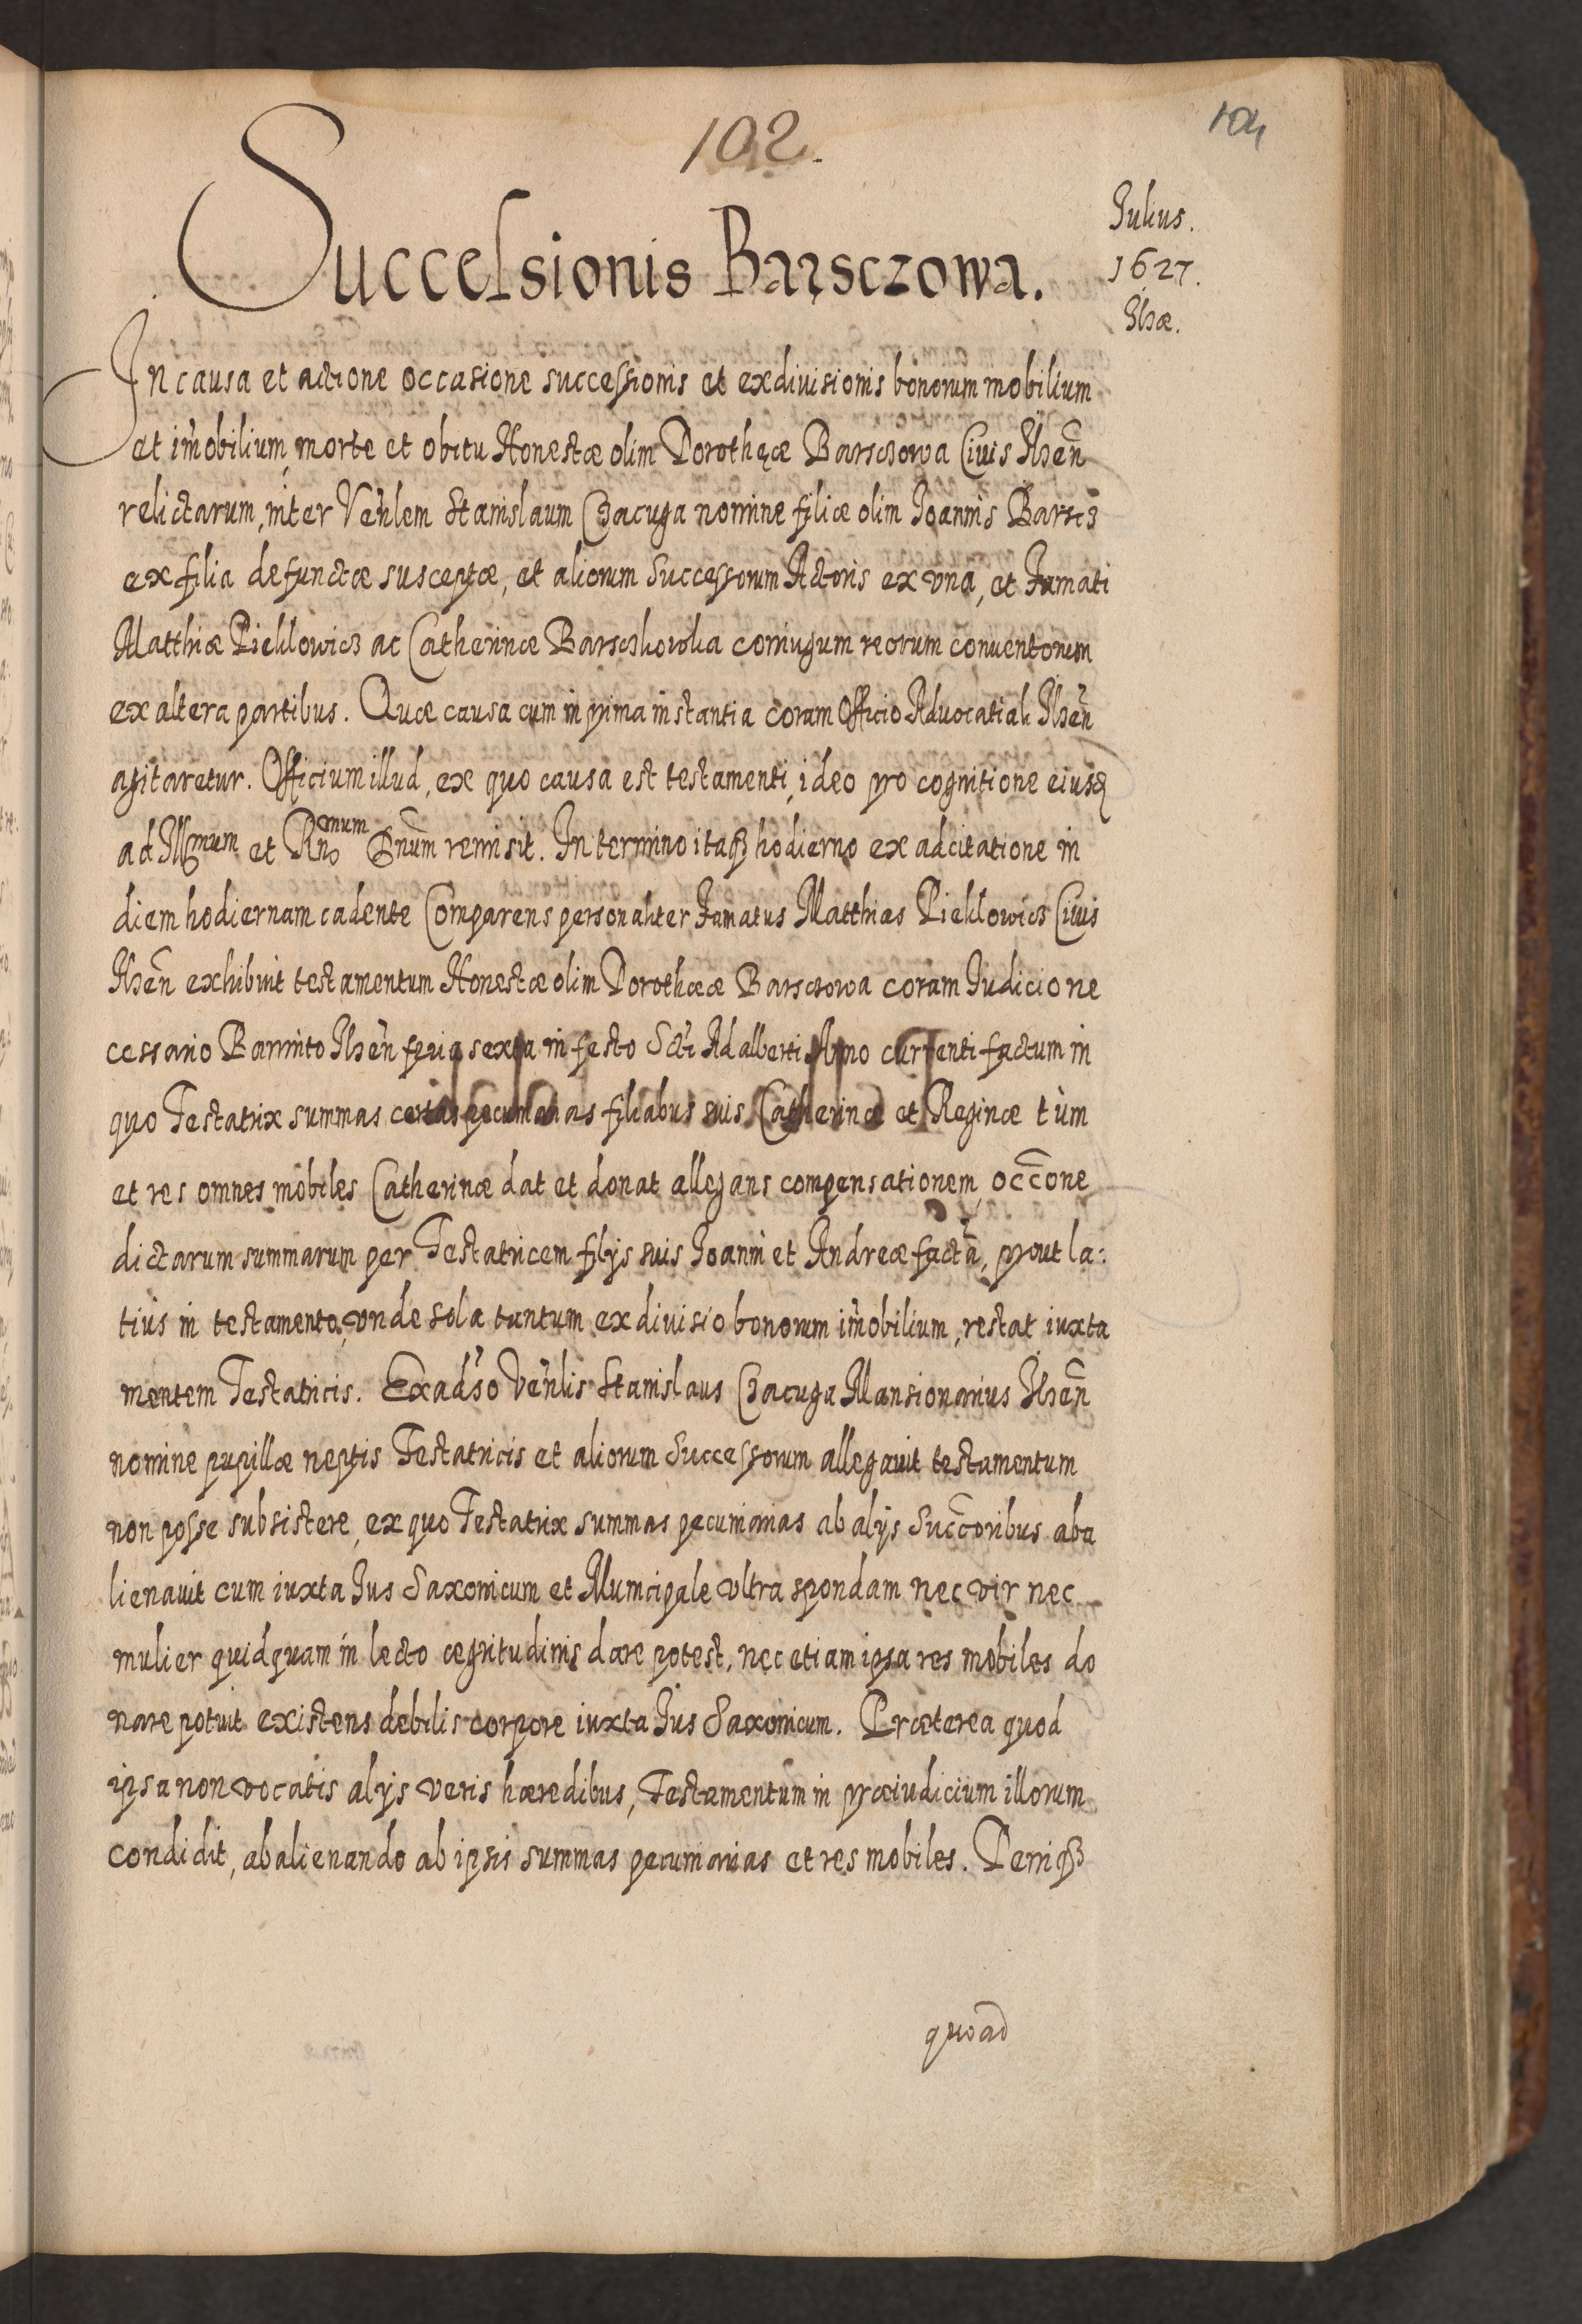 102.
104
Julius.
1627.
Ilzæ.
Successionis Barsczowa.
In causa et actione occasione successionis et exdiuisionis bonorum mobilium
et im̃obilium, morte et obitu Honestæ olim Dorothęæ Barsczowa Ciuis Ilzeñ
relictarum, inter Veñlem Stanislaum Czacuga nomine filiæ olim Joannis Barscz
ex filia defunctæ susceptæ, et aliorum Successorum Actoris ex vna, et Famati
Matthiæ Pieklowicz ac Catherinæ Barsczkowka coniugum reorum conuentorum
ex altera partibus. Quæ causa cum in prima instantia coram Officio Aduocatiali Ilzeñ
agitaretur. Officium illud, ex quo causa est testamenti, ideo pro cognitione eiusd
ad Illmum et Rndmum Dnum remisit. In termino itaqꝫ hodierno ex adcitatione in
diem hodiernam cadente Comparens personaliter Famatus Matthias Pieklowicz Ciuis
Ilzeñ exhibuit testamentum Honestæ olim Dorothææ Barsczowa coram Judicio ne
cessario Bannito Ilzeñ feria sexta in festo Scti Adalberti Anno currenti factum in
quo Testatrix summas certas pecuniarias filiabus suis Catherinæ et Reginæ tùm
et res omnes mobiles Catherinæ dat et donat allegans compensationem, occ̃one
dictarum summarum per Testatricem filijs suis Joanni et Andreæ factã, prout la:
tiùs in testamento, vnde sola tantum exdiuisio bonorum im̃obilium, restat iuxta
mentem Testatricis. Ex aduerso Veñlis Stanislaus Czacuga Mansionarius Ilzeñ
nomine pupillæ neptis Testatricis et aliorum Successorum allegauit testamentum
non posse subsistere, ex quo Testatrix summas pecuniarias ab alijs Succ̃oribus aba
lienauit cum iuxta Jus Saxonicum et Municipale vltra spondam nec vir nec
mulier quidquam in lecto ægritudinis dare potest, nec etiam ipsa res mobiles do
nare potuit existens debilis corpore iuxta Jus Saxonicum. Præterea quod
ipsa non vocatis alijs veris hæredibus, Testamentum in præiudicium illorum
condidit, abalienando ab ipsis summas pecuniarias et res mobiles. Deniqꝫ
quoad